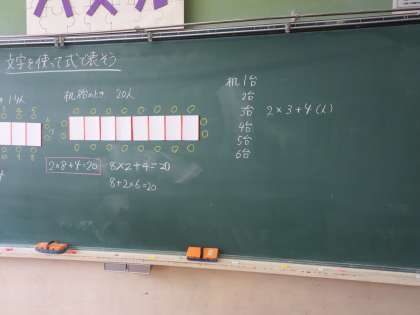 パズル
文字を使って式で表そう
14人
20人
2×8+4=20
8×2+4=20
8+2×6=20
机1台
2台
3台 2×3+4(人)
4台
5台
6台